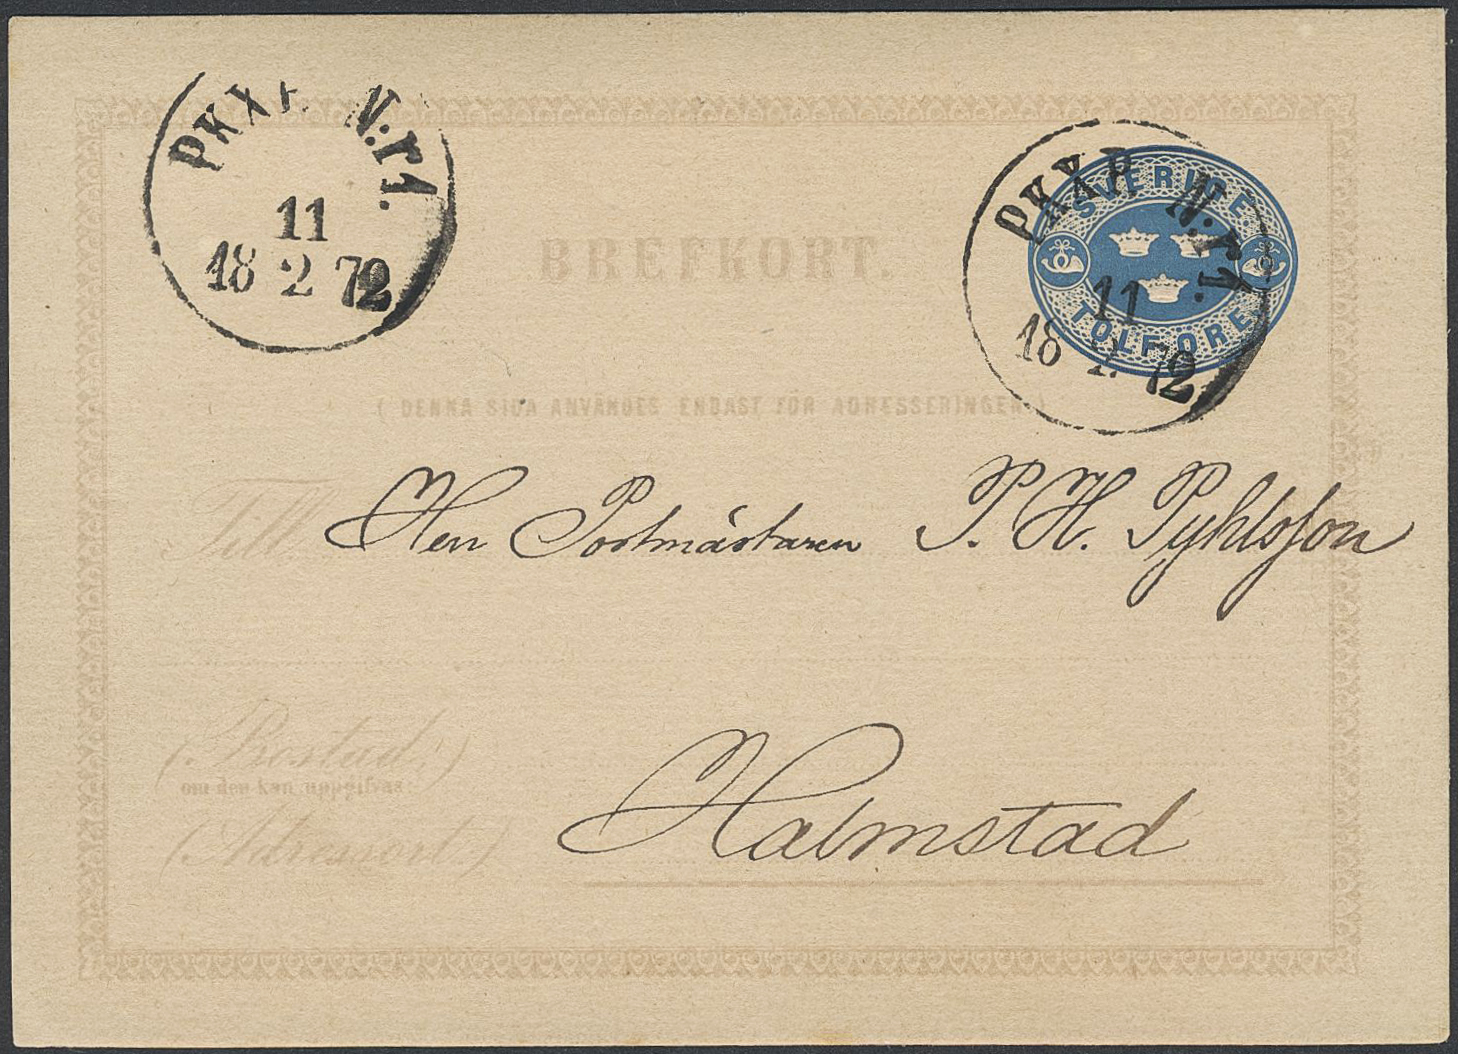 PKXP N:r 1.
11
18 2 72
PKXP N:r 1.
11
18 2 72
SVERIGE
TOLF ÖRE
BREFKORT.
(DENNA SIDA ANVÄNDES ENDAST FÖR ADRESSERINGEN.)
Till Herr Postmästaren P. H. Pyhlsson
(Bostad,
om den kan uppgifvas:
(Adressort)
Halmstad